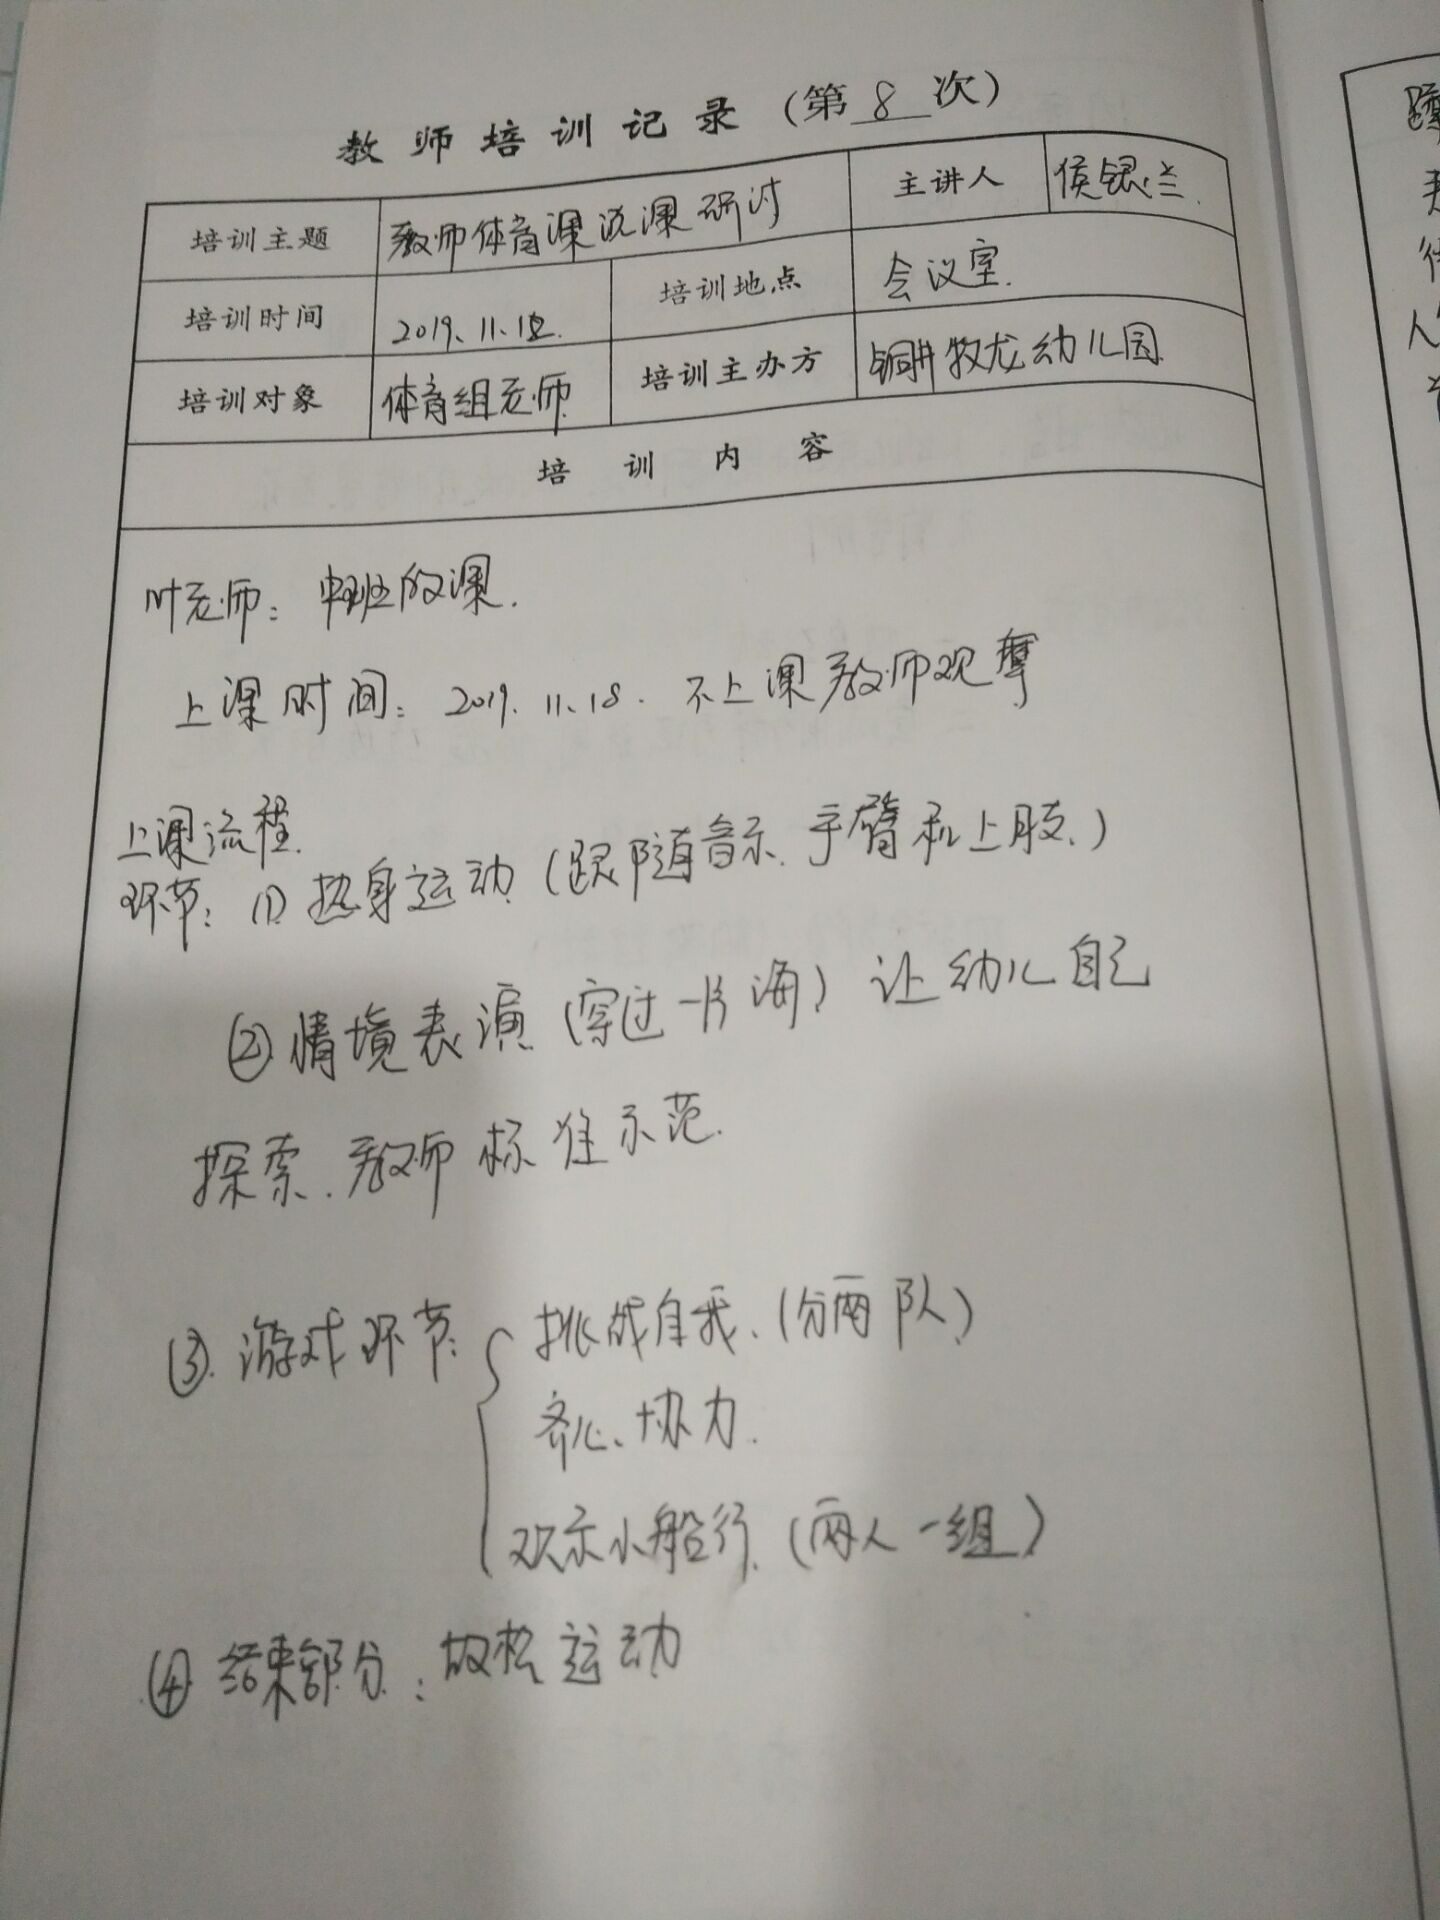 教师培训记录（第8次）
培训主题 教师体育课说课研讨 主讲人 侯银兰
培训时间 2019.11.12 培训地点 会议室.
培训对象 体育组老师 培训主办方 铜井牧龙幼儿园
培训内容
叶老师：中班的课.
上课时间：2019.11.18. 不上课教师观摩
上课流程.
环节：(1) 热身运动（跟随音乐.手臂和上肢.）
② 情境表演（穿过一片海）让幼儿自己
探索.教师标准示范.
③. 游戏环节：
挑战自我、（分两队）
齐心、协力.
欢乐小船行.（两人一组）
④ 结束部分：放松运动